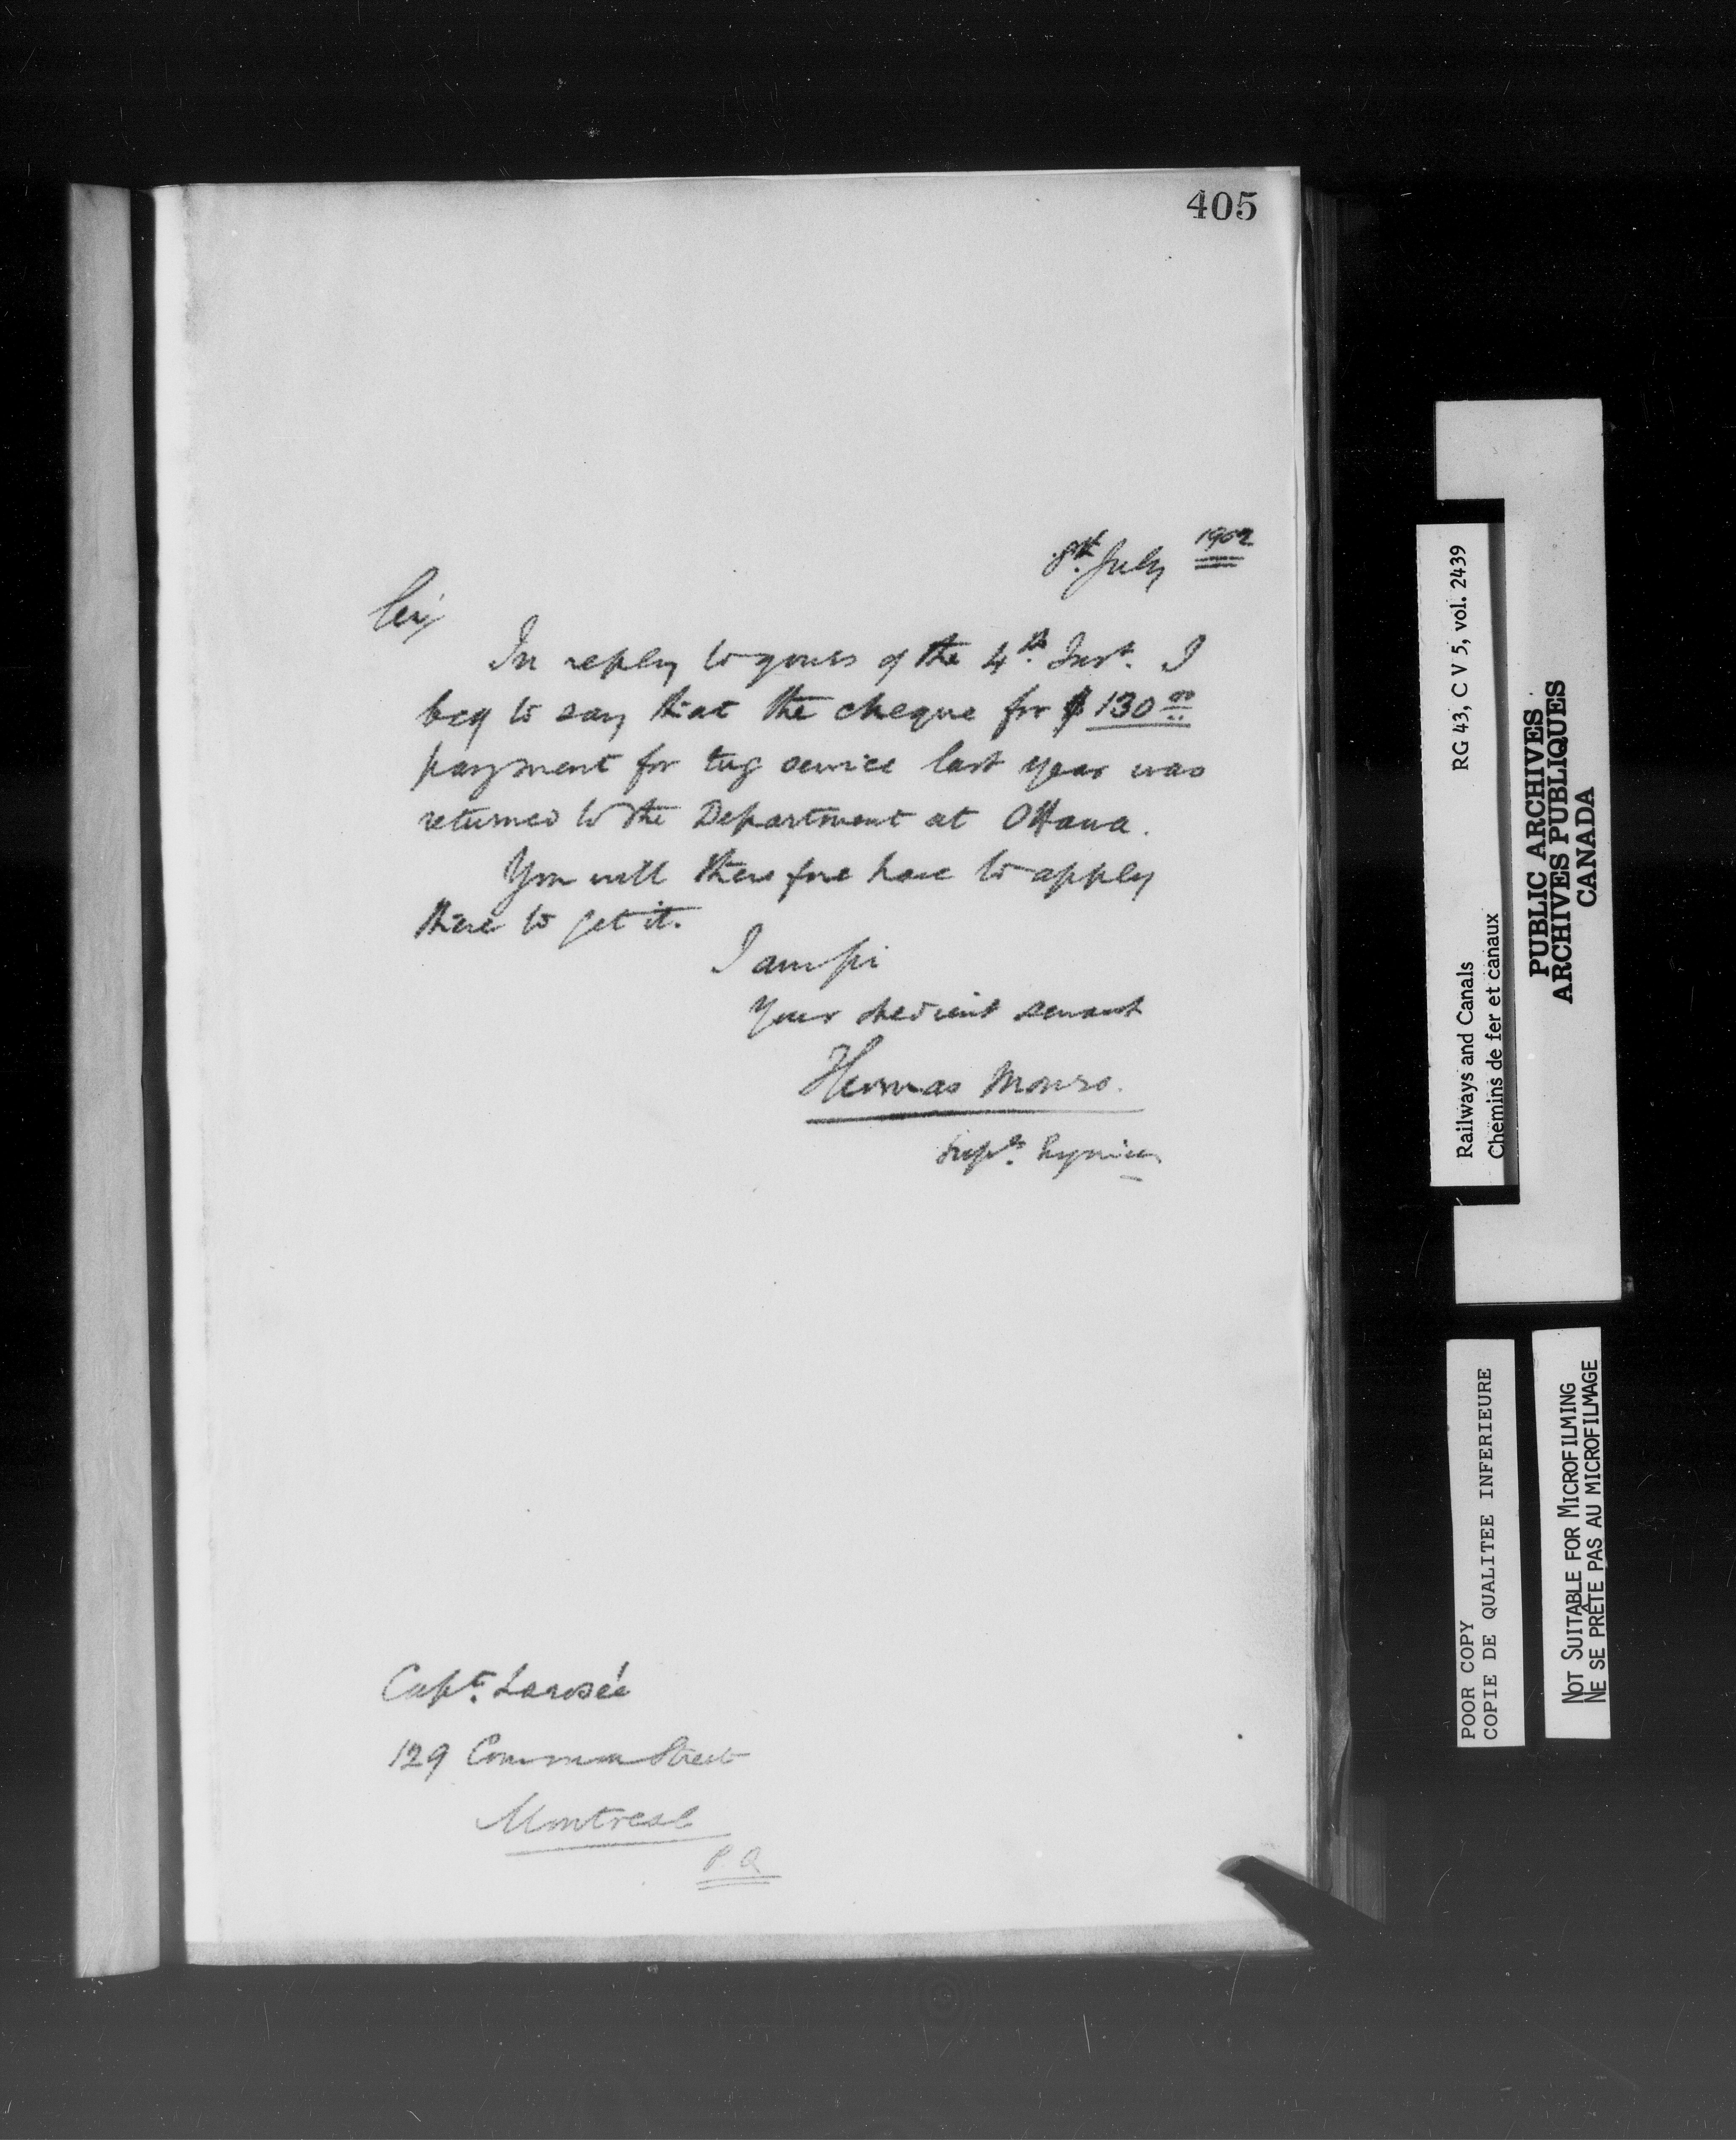 405
8th July 1902
Sir
In reply to yours of the 4th Inst. I
beg to say that the cheque for $130 00
payment for tug service last year was
returned to the Department at Ottawa.
You will therefore have to apply
there to get it.
I am Sir
Your obedient servant
Thomas Monro.
Supt. Engineer
Capt. Larosée
129 Common Street
Montreal
P.Q
Railways and Canals RG 43, C V 5, vol. 2439
Chemins de fer et canaux
PUBLIC ARCHIVES
ARCHIVES PUBLIQUES
CANADA
POOR COPY
COPIE DE QUALITEE INFERIEURE
NOT SUITABLE FOR MICROFILMING
NE SE PRÊTE PAS AU MICROFILMAGE